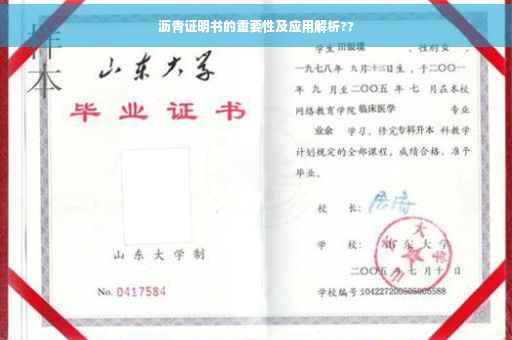 沥青证明书的重要性及应用解析??
样本
山东大学
毕业证书
山东大学制
No. 0417584
学生 田银瑞 ，性别 女 ，
一九七八年 九月十三日生，于二〇〇一
年 九 月至二〇〇五 年 七 月在本校
网络教育学院 临床医学 专业
业余 学习，修完专科升本 科教学
计划规定的全部课程，成绩合格，准予
毕业。
校 长：
学 校： 山东大学
二〇〇五 年 七 月 十 日
学校编号：104227200505005588